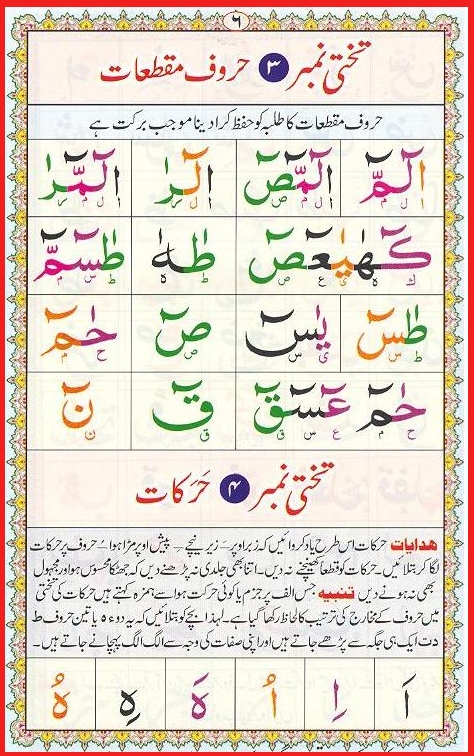 ۶
تختی نمبر ۳ حروف مقطعات
حروف مقطعات کا طلبہ کو حفظ کرا دینا موجب برکت ہے
الٓمّٓ الٓمّٓصٓ الٓرٰ الٓمّٓرٰ
کٓھٰیٰعٓصٓ طٰهٰ طٰسٓمّٓ
طٰسٓ یٰسٓ صٓ حٰمٓ
حٰمٓ عٓسٓقٓ قٓ نٓ
تختی نمبر ۴ حَرَکات
هدایات حرکات اس طرح یاد کروائیں کہ زبر اوپر ے زیر نیچے ے پیش اوپر مڑا ہوا ے حروف پر حرکات
لگا کر بتلائیں۔ حرکات کو قطعاً کھینچنے نہ دیں۔ اتنا بھی جلدی نہ پڑھنے دیں کہ جھٹکا محسوس ہو اور مجہول
بھی نہ ہونے دیں تنبیه جس الف پر جزم یا کوئی حرکت ہو اسے ہمزہ کہتے ہیں حرکات کی تختی
میں حروف کے مخارج کی ترتیب کا لحاظ رکھا گیا ہے۔ لہذا بچے کو بتلائیں کہ یہ دو ء ہ یا تین حروف ط
د ت ایک ہی جگہ سے پڑھے جاتے ہیں اور اپنی صفات کی وجہ سے الگ الگ پہچانے جاتے ہیں۔
اَ اِ اُ هَ هِ هُ